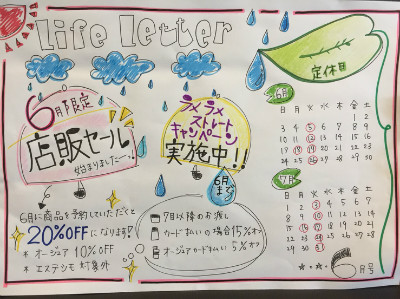 Life letter
定休日
6月限定
店販セール
始まりましたー!
ラメラメ
ストレート
キャンペーン
実施中!!
6月まで
6月に商品を予約していただくと
20%OFFになります!
* オージュア 10%OFF
* エステシモ 対象外
7日以降のお渡し
カード払いの場合15%オフ
オージュアカード払い5%オフ
6月
日 月 火 水 木 金 土
1 2
3 4 5 6 7 8 9
10 11 12 13 14 15 16
17 18 19 20 21 22 23
24 25 26 27 28 29 30
7月
日 月 火 水 木 金 土
1 2 3 4 5 6 7
8 9 10 11 12 13 14
15 16 17 18 19 20 21
22 23 24 25 26 27 28
29 30 31
6月号